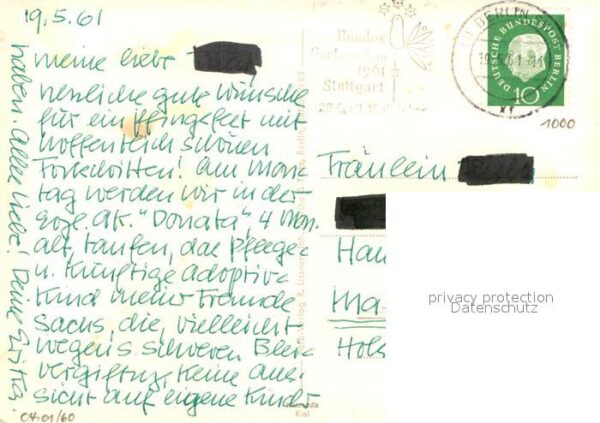 19.5.61
meine liebe
herzliche gute Wünsche
für ein Pfingsfest mit
hoffentlich schönen
Fortschritten! Am Mon-
tag werden wir in der
Ak. "Donata", 4 Mon.
alt, taufen, das Pflege-
u. künftige Adoptiv-
kind meiner Freunde
Sachs, die, vielleicht
wegen s. schweren Blei-
vergiftung, keine Aus-
sicht auf eigene Kinder
haben. Alles Liebe! Deine Erika.
04.01/60
Bundes
Gartenschau
1961
Stuttgart
BERLIN
DEUTSCHE BUNDESPOST BERLIN
10
1000
Fräulein
Hau
Ma
Hols
Kiel
privacy protection
Datenschutz